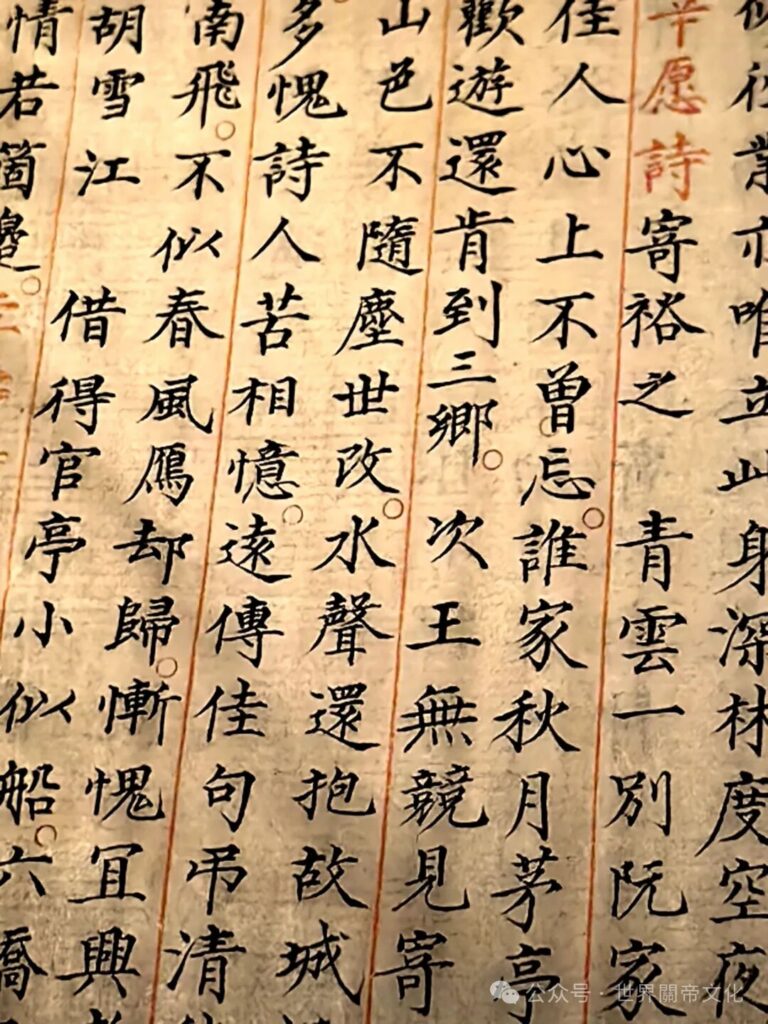 業亦唯立此身深林度空夜
辛愿詩寄裕之 青雲一別阮家
佳人心上不曾忘。誰家秋月茅亭
歡遊還肯到三鄉。次王無競見寄
山色不隨塵世改。水聲還抱故城
多愧詩人苦相憶。遠傳佳句弔清
南飛。不似春風鴈却歸。慚愧冝興
胡雪江 借得官亭小似船。六橋
情若箇邊。
公众号 · 世界關帝文化